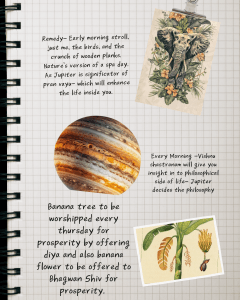 Remedy- Early morning stroll,
just me, the birds, and the
crunch of wooden planks.
Nature's version of a spa day.
As Jupiter is significator of
pran vayu- which will enhance
the life inside you.
Every Morning -Vishnu
shastranam will give you
insight in to philosophical
side of life- Jupiter
decides the philosophy
Banana tree to be
worshipped every
thursday for
prosperity by offering
diya and also banana
flower to be offered to
Bhagwan Shiv for
prosperity.